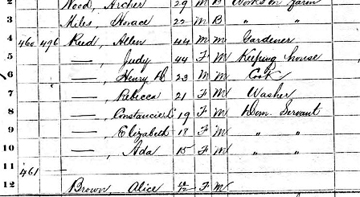 Wood, Archer 29 M B Works on farm
3 Miles, Horace 22 M B " "
4 460 496 Reed, Allen 44 M M Gardener
5 —, Judy 44 F M Keeping house
6 —, Henry 23 M M Cook
7 —, Rebecca 21 F M Washer
8 —, 19 F M Dom. Servant
9 —, Elizabeth 17 F M " "
10 —, Ada 15 F M " "
11 461
12 Brown, Alice F M